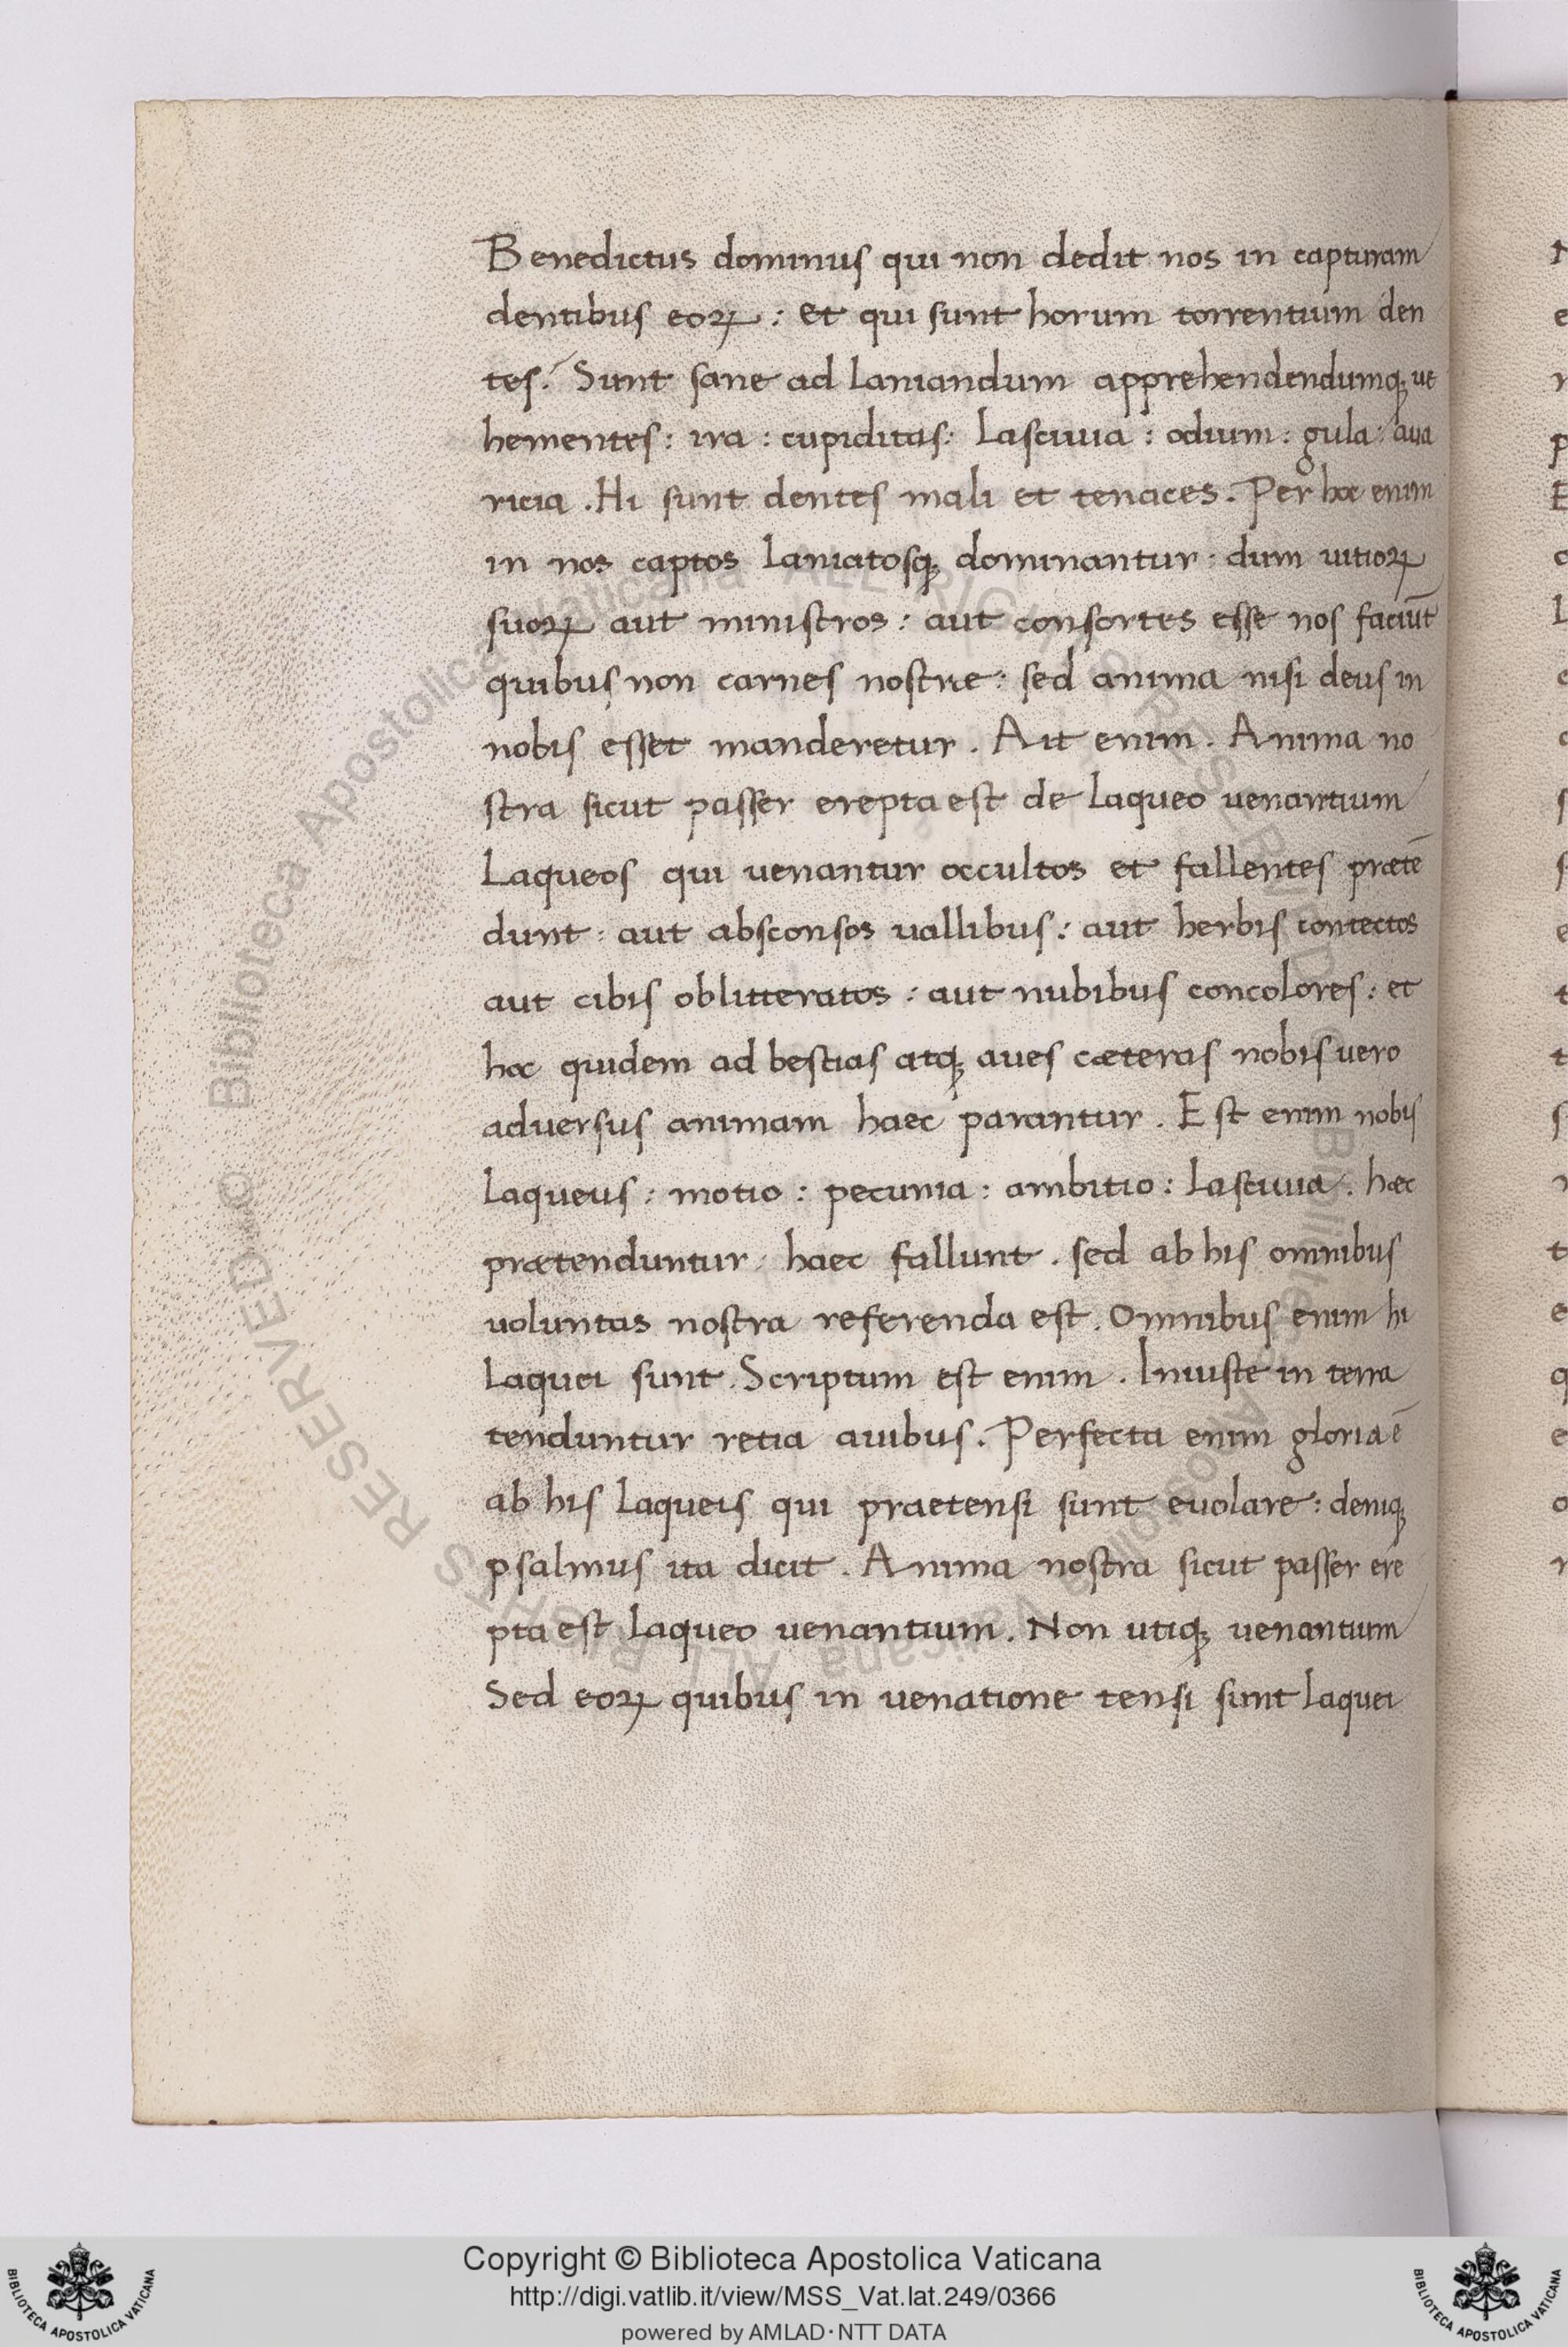 Benedictus dominus qui non dedit nos in capturam
dentibus eoꝝ : et qui sunt horum torrentium den
tes. Sunt sane ad laniandum apprehendendumqꝫ ue
hementes : ira : cupiditas : Lasciuia : odium : gula : aua
ricia . Hi sunt dentes mali et tenaces . Per hoc enim
in nos captos laniatosqꝫ dominantur : dum uitioꝝ
suoꝝ aut ministros : aut consortes esse nos faciūt
quibus non carnes nostre : sed anima nisi deus in
nobis esset manderetur . Ait enim . Anima no
stra sicut passer erepta est de laqueo uenantium
Laqueos qui uenantur occultos et fallentes prætē
dunt : aut absconsos uallibus : aut herbis contectos
aut cibis oblitteratos : aut nubibus concolores : et
hoc quidem ad bestias atqꝫ aues cæteras nobis uero
aduersus animam haec parantur . Est enim nobis
Laqueus : motio : pecunia : ambitio : Lasciuia . hæc
prætenduntur haec fallunt . sed ab his omnibus
uoluntas nostra referenda est . Omnibus enim hi
Laquei sunt . Scriptum est enim . Iniuste in terra
tenduntur retia auibus . Perfecta enim gloria ē
ab his laqueis qui praetensi sunt euolare : deniqꝫ
psalmus ita dicit . Anima nostra sicut passer ere
pta est laqueo uenantium . Non utiqꝫ uenantum
Sed eoꝝ quibus in uenatione tensi sunt laquei
Copyright © Biblioteca Apostolica Vaticana
http://digi.vatlib.it/view/MSS_Vat.lat.249/0366
powered by AMLAD·NTT DATA
BIBLIOTECA APOSTOLICA VATICANA
BIBLIOTECA APOSTOLICA VATICANA